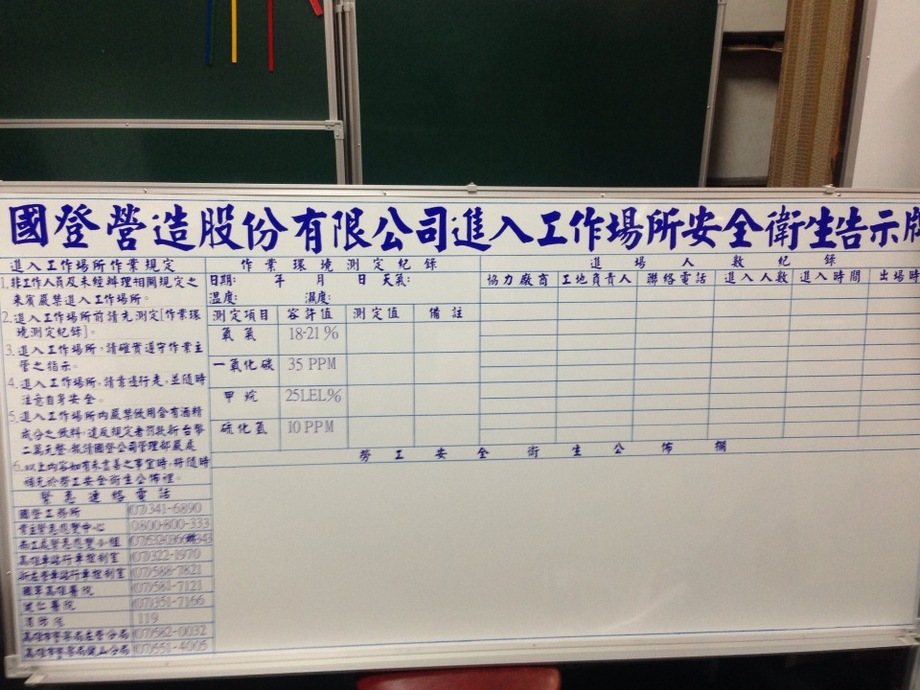 國登營造股份有限公司進入工作場所安全衛生告示
進入工作場所作業規定
1.非工作人員及未經辦理相關規定之
來賓嚴禁進入工作場所。
2.進入工作場所前請先測定[作業環
境測定紀錄]。
3.進入工作場所,請確實遵守作業主
管之指示。
4.進入工作場所,請靠邊行走,並隨時
注意自身安全。
5.進入工作場所內嚴禁飲用含有酒精
成分之飲料,違反規定者罰款新台幣
二萬元整,報請國登公司管理部嚴處
6.以上內容如有未盡善之事宜時,將隨時
補充於勞工安全衛生公佈裡。
緊急連絡電話
國登工務所 (07)341-6890
業主緊急應變中心 0800-800-333
南工處緊急應變小組
高雄車站行車控制室 (07)322-1970
新左營車站行車控制室 (07)588-7821
國軍高雄醫院 (07)581-7121
醫院 (07)351-7166
消防隊 119
高雄市警察局左營分局 (07)582-0032
高雄市警察局鼓山分局 (07)551-4005
作業環境測定紀錄
日期: 年 月 日 天氣:
溫度: 濕度:
測定項目 容許值 測定值 備註
氧氣 18-21%
一氧化碳 35 PPM
甲烷 25LEL%
硫化氫 10 PPM
進場人數紀錄
協力廠商 工地負責人 聯絡電話 進入人數 進入時間 出場時
勞工安全衛生公佈欄